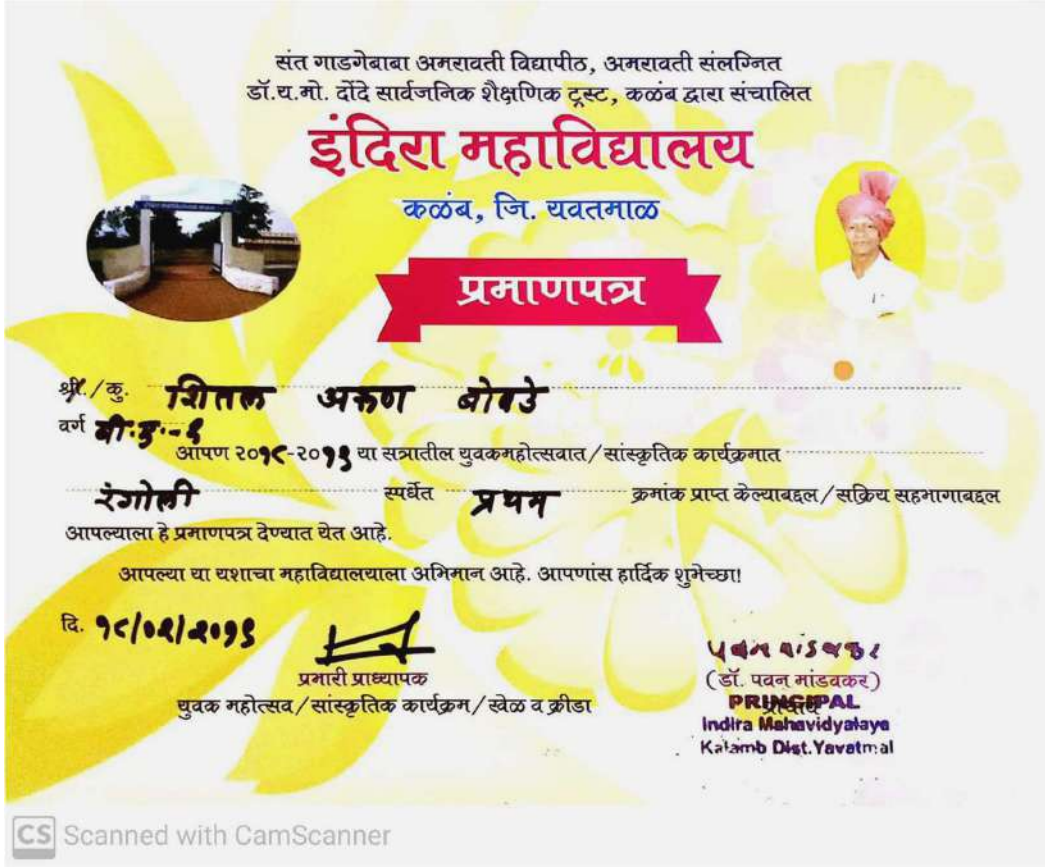 संत गाडगेबाबा अमरावती विद्यापीठ, अमरावती संलग्नित
डॉ.य.मो. दोंदे सार्वजनिक शैक्षणिक ट्रस्ट, कळंब द्वारा संचालित
इंदिरा महाविद्यालय
कळंब, जि. यवतमाळ
प्रमाणपत्र
श्री./कु. शितल अरुण बोबडे
वर्ग बी.ए.-१
आपण २०१८-२०१९ या सत्रातील युवकमहोत्सवात/सांस्कृतिक कार्यक्रमात
रंगोली स्पर्धेत प्रथम क्रमांक प्राप्त केल्याबद्दल/सक्रिय सहभागाबद्दल
आपल्याला हे प्रमाणपत्र देण्यात येत आहे.
आपल्या या यशाचा महाविद्यालयाला अभिमान आहे. आपणांस हार्दिक शुभेच्छा!
दि. १८/०२/२०१९
प्रभारी प्राध्यापक
युवक महोत्सव/सांस्कृतिक कार्यक्रम/खेळ व क्रीडा
(डॉ. पवन मांडवकर)
प्राचार्य
PRINCIPAL
Indira Mahavidyalaya
Kalamb Dist.Yavatmal
CS Scanned with CamScanner